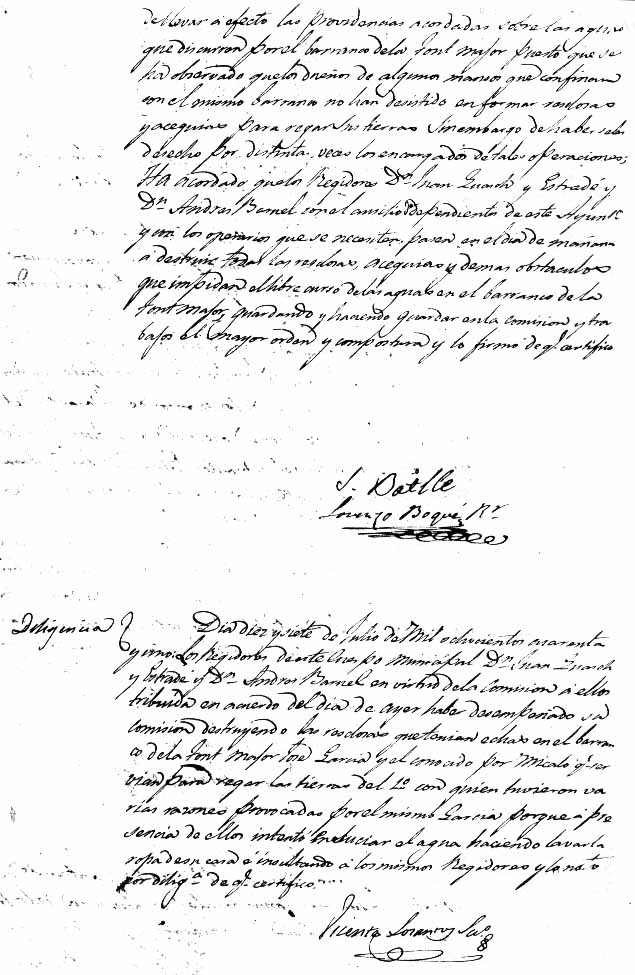 de llevar a efecto las providencias acordadas sobre las aguas
que discurren por el barranco de la Font major puesto que se
ha observado que los dueños de algunos mansos que confinan
con el mismo barranco no han desistido en formar resclosas
y acequias para regar sus tierras sin embargo de haber sele
desecho por distintas veces los encargados de tales operaciones;
Ha acordado que los Regidores Dn Juan Guasch y Estradé y
Dn Andres Barnel con el auxilio dependiente de este Ayunto
y con los operarios que se necesiten pasen en el dia de mañana
a destruir todas las resclosas, acequias y demas obstaculos
que impidan el libre curso de las aguas en el barranco de la
font major, guardando y haciendo guardar en la comision y tra
bajos el mayor orden y compostura y lo firmo de q.e certifico
J. Batlle
Lorenzo Boqué Rr
Diligencia
Dia diez y siete de Julio de Mil ochocientos cuarenta
y uno: Los Regidores de este Cuerpo Municipal Dn Juan Guasch
y Estradé y Dn Andres Barnel en virtud de la Comision á ellos
tribuida en acuerdo del dia de ayer haber desempeñado su
comision destruyendo las resclosas que tenian echas en el barran
co de la font Major José Garcia y el conocido por Micaló q.e ser
vian para regar las tierras del 1o con quien tuvieron va
rias razones provocadas por el mismo Garcia porque á pre
sencia de ellos intentó ensuciar el agua haciendo lavar la
ropa de su casa é insultando á los mismos Regidores y lo noto
por dilig.a de q.e certifico
Vicente Sno